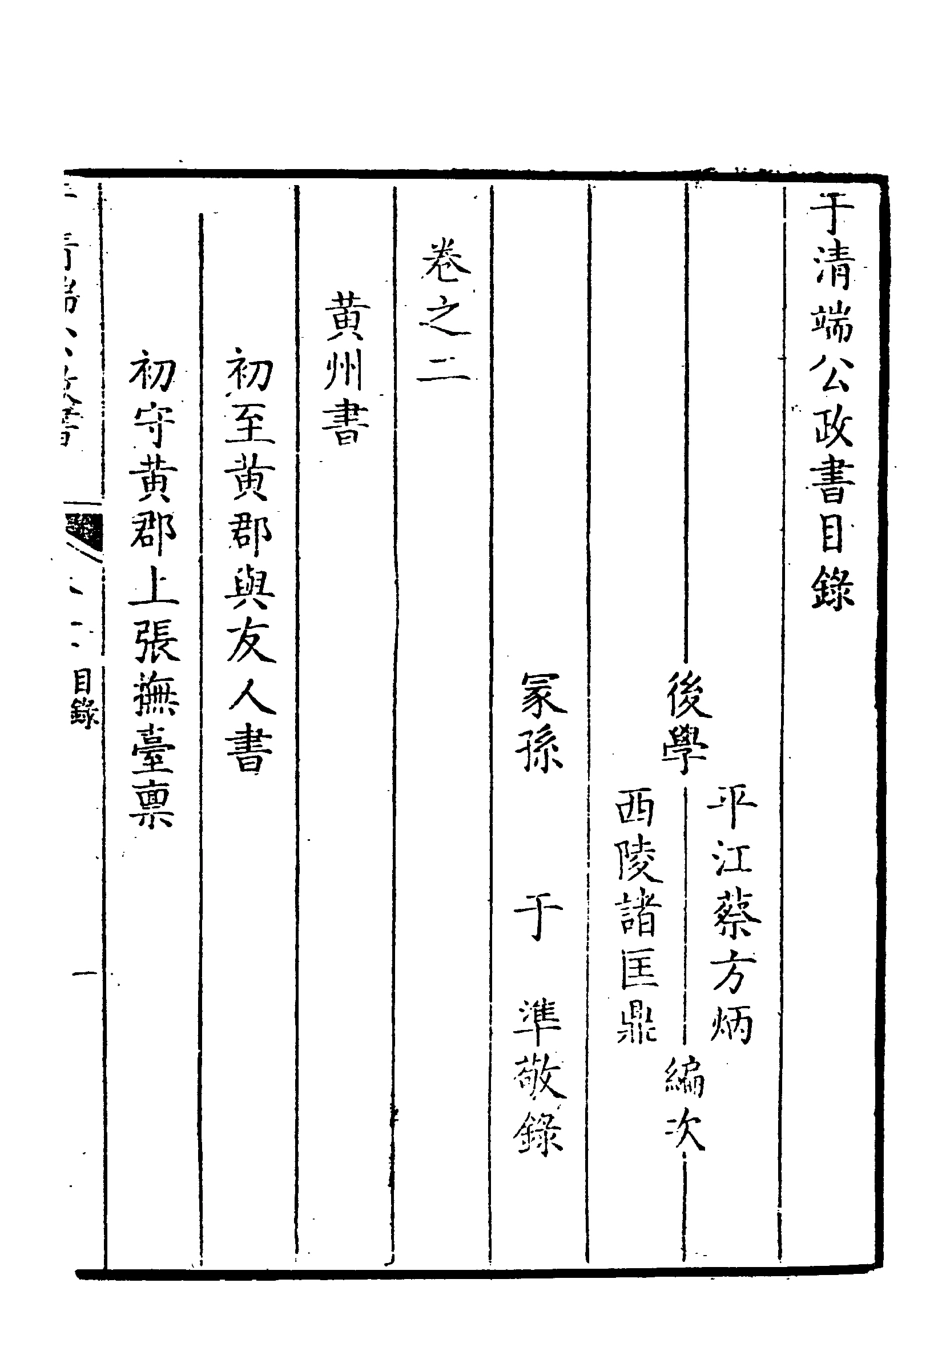 于清端公政書目錄
後學
平江蔡方炳
西陵諸匡鼎
編次
冢孫 于 準敬錄
卷之二
黃州書
初至黃郡與友人書
初守黃郡上張撫臺稟
目錄
一